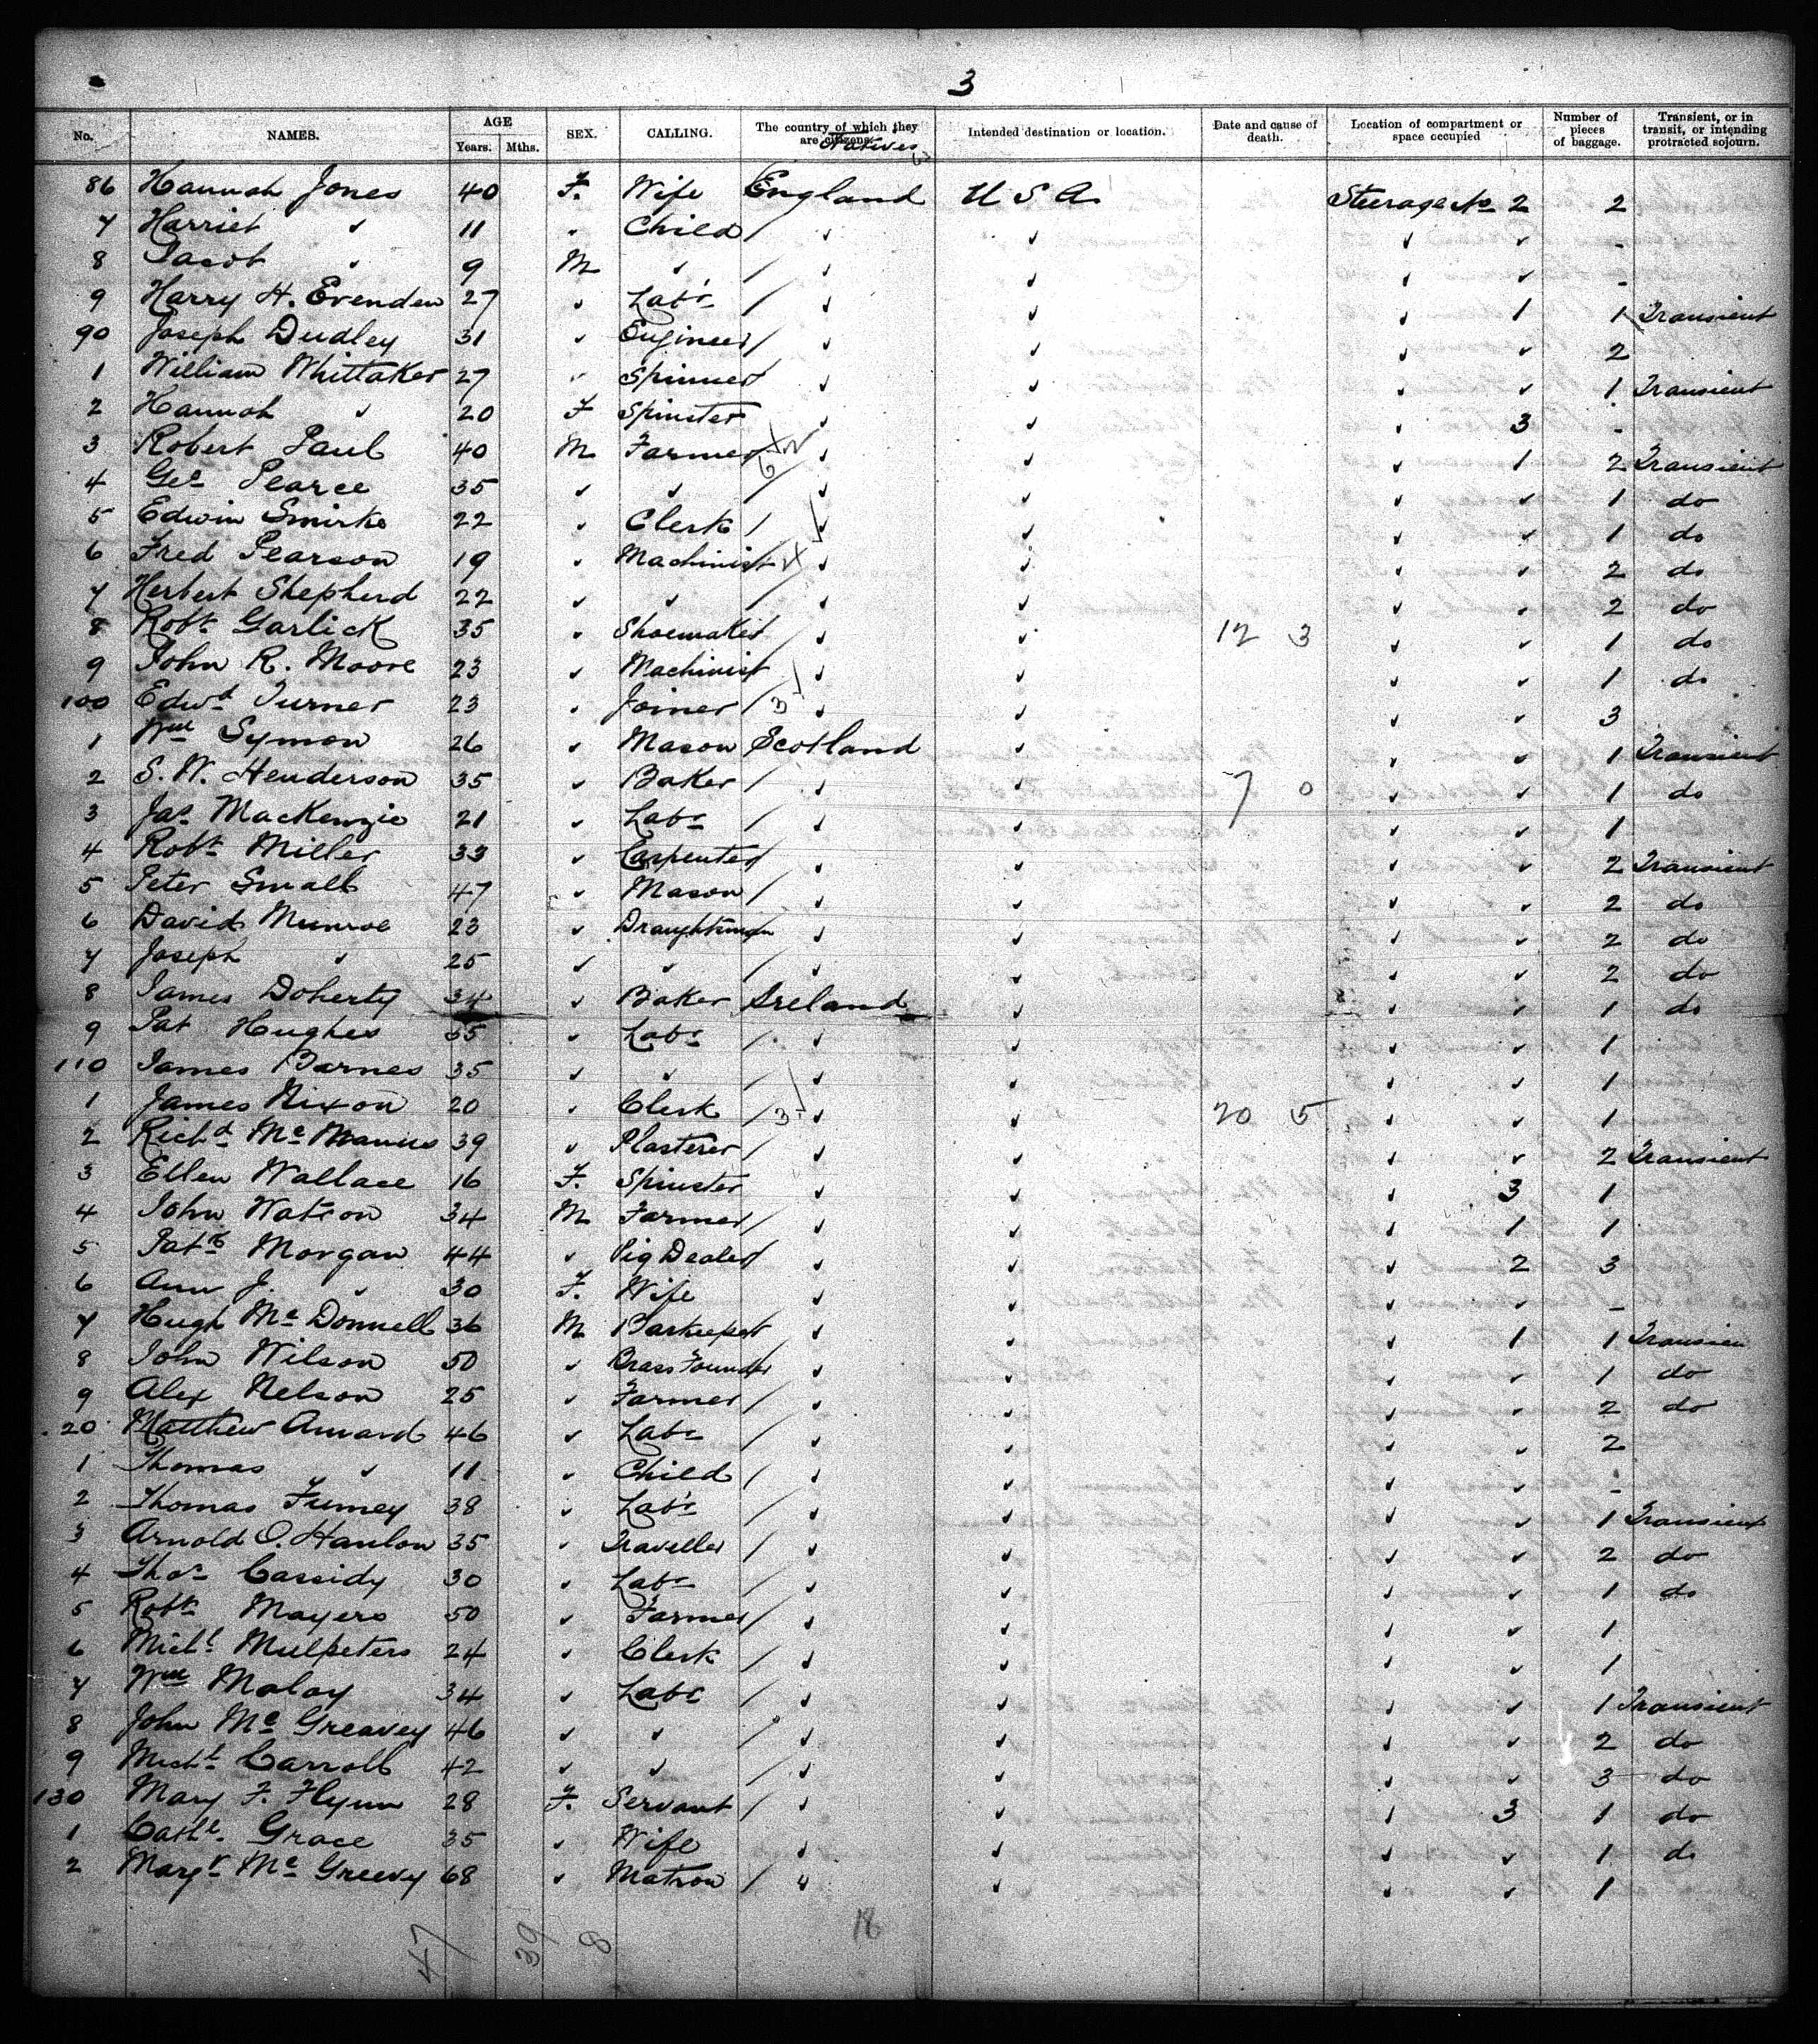 3
No. NAMES. AGE Years. Mths. SEX. CALLING. The country of which they are citizens. Natives Intended destination or location. Date and cause of death. Location of compartment or space occupied Number of pieces of baggage. Transient, or in transit, or intending protracted sojourn.
86 Hannah Jones 40 F. Wife England U S A Steerage No 2 2
7 Harriet " 11 " Child / " " " " -
8 Jacob " 9 M " / " " " " -
9 Harry H. Evenden 27 " Labr / " " " 1 1 Transient
90 Joseph Dudley 31 " Engineer / " " " " 2
1 William Whittaker 27 " Spinner / " " " " 1 Transient
2 Hannah " 20 F Spinster " " " 3 -
3 Robert Paul 40 M Farmer / " " " 1 2 Transient
4 Geo Pearce 35 " " / " " " " 1 do
5 Edwin Smirke 22 " Clerk / " " " " 1 do
6 Fred Pearson 19 " Machinist / 4 " " " " 2 do
7 Herbert Shepherd 22 " " / " " " " 2 do
8 Robt Garlick 35 " Shoemaker / " " 12 3 " " 1 do
9 John R. Moore 23 " Machinist / " " " " 1 do
100 Edwd Turner 23 " Joiner / 3 " " " " 3
1 Wm Symon 26 " Mason Scotland " " " 1 Transient
2 S. W. Henderson 35 " Baker / " " 7 0 " " 1 do
3 Jas MacKenzie 21 " Labr / " " " " 1
4 Robt Miller 33 " Carpenter / " " " " 2 Transient
5 Peter Small 47 " Mason / " " " " 2 do
6 David Munroe 23 " Draughtsman " " " " 2 do
7 Joseph " 25 " " / " " " " 2 do
8 James Doherty 34 " Baker Ireland " " " 1 do
9 Pat Hughes 35 " Labr / " " " " 1
110 James Barnes 35 " " / " " " " 1
1 James Nixon 20 " Clerk / 3 " " 20 5 " " 1
2 Richd Mc Manus 39 " Plasterer / " " " " 2 Transient
3 Ellen Wallace 16 F. Spinster " " " 3 1
4 John Watson 34 M Farmer / " " " 1 1
5 Patk Morgan 44 " Pig Dealer / " " " 2 3
6 Ann J. " 30 F. Wife " " " " -
7 Hugh Mc Donnell 36 M Barkeeper / " " " 1 1 Transien
8 John Wilson 50 " Brass Founder " " " " 1 do
9 Alex Nelson 25 " Farmer / " " " " 2 do
20 Matthew Annard 46 " Labr / " " " " 2
1 Thomas " 11 " Child / " " " " -
2 Thomas Furney 38 " Labr / " " " " 1 Transient
3 Arnold O. Hanlon 35 " Traveller / " " " " 2 do
4 Thos Cassidy 30 " Labr / " " " " 1 do
5 Robt Mayers 50 " Farmer / " " " " 1
6 Michl Mulpeters 24 " Clerk / " " " " 1
7 Wm Maloy 34 " Labr / " " " " 1 Transient
8 John Mc Greavey 46 " " / " " " " 2 do
9 Michl Carroll 42 " " / " " " " 3 do
130 Mary F. Flynn 28 F. Servant / " " " 3 1 do
1 Cathe. Grace 35 " Wife " " " " 1 do
2 Margt Mc Greevy 68 " Matron / " " " " 1
47 39 8 18